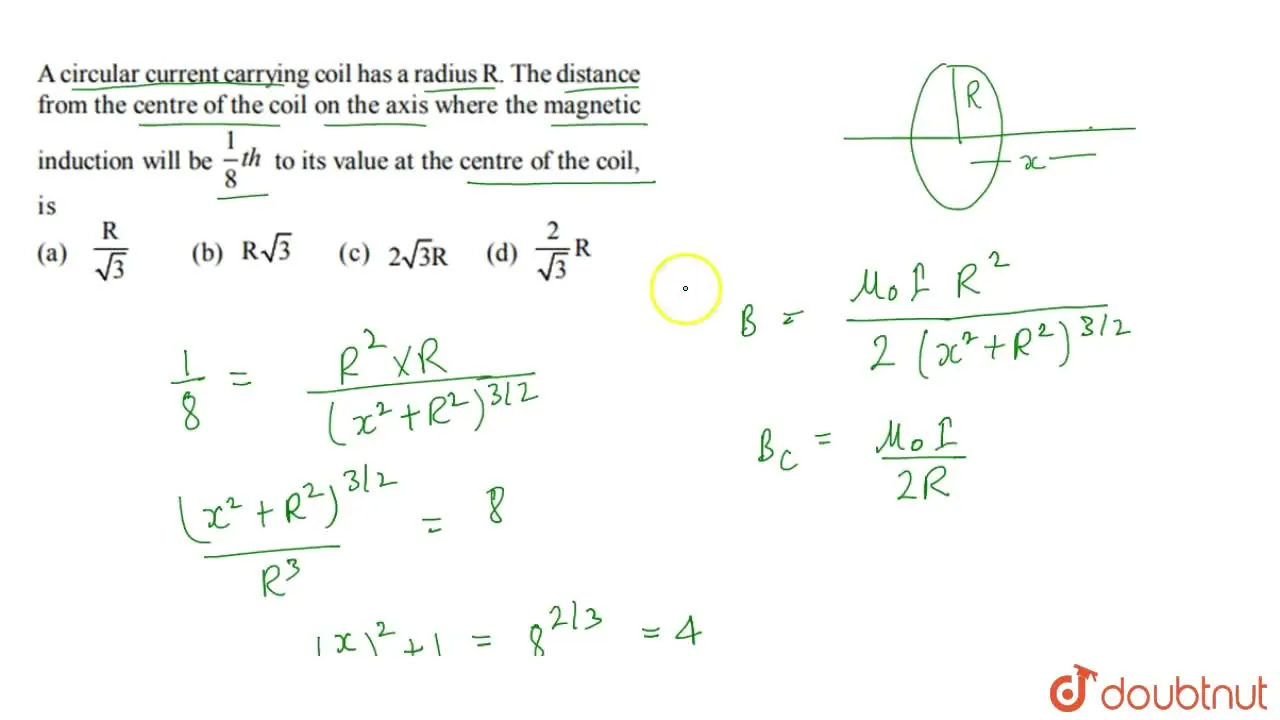 A circular current carrying coil has a radius R. The distance
from the centre of the coil on the axis where the magnetic
induction will be 1/8 th to its value at the centre of the coil,
is
(a) R/√3 (b) R√3 (c) 2√3R (d) 2/√3 R
R
x
B = μ₀I R² / 2 (x² + R²)^3/2
1/8 = R² × R / (x² + R²)^3/2
B_C = μ₀I / 2R
(x² + R²)^3/2 / R³ = 8
(x)² + 1 = 8^2/3 = 4
doubtnut